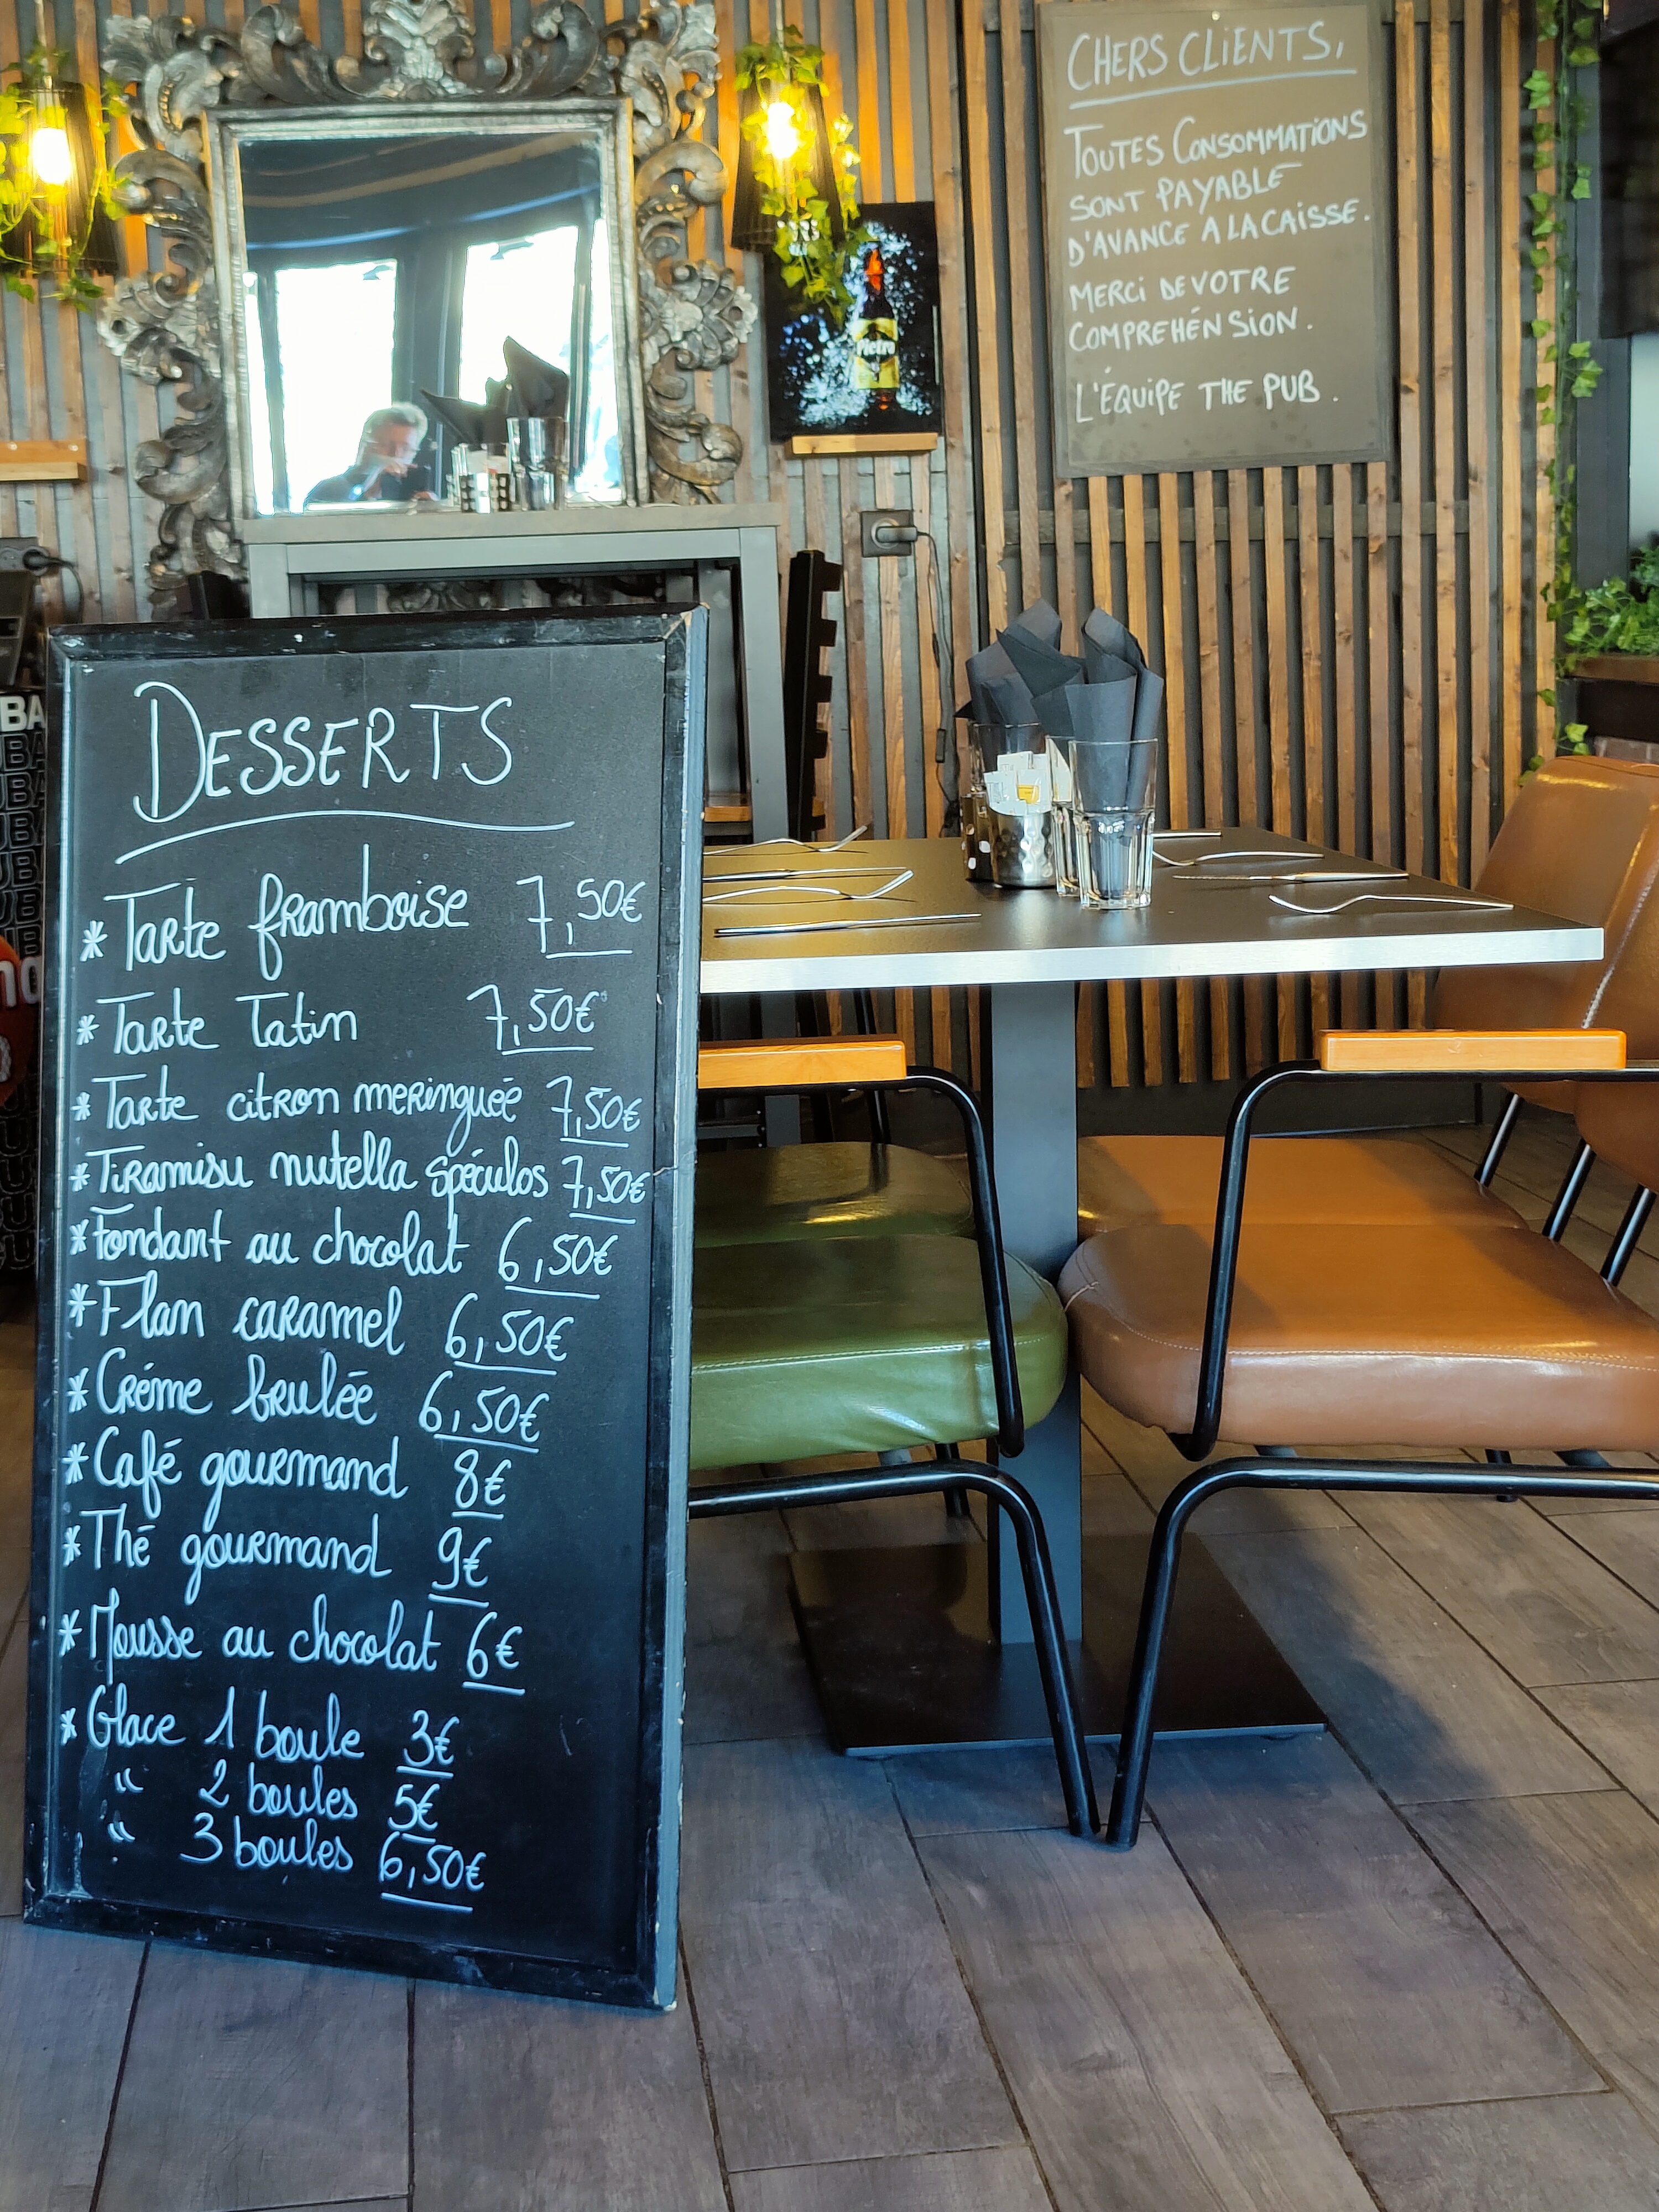 CHERS CLIENTS,
TOUTES CONSOMMATIONS
SONT PAYABLE
D'AVANCE A LA CAISSE.
MERCI DE VOTRE
COMPREHÉNSION.
L'ÉQUIPE THE PUB.
Pietra
DESSERTS
* Tarte framboise 7,50€
* Tarte Tatin 7,50€
* Tarte citron meringuée 7,50€
* Tiramisu nutella spéculos 7,50€
* Fondant au chocolat 6,50€
* Flan caramel 6,50€
* Créme brulée 6,50€
* Café gourmand 8€
* Thé gourmand 9€
* Mousse au chocolat 6€
* Glace 1 boule 3€
" 2 boules 5€
" 3 boules 6,50€